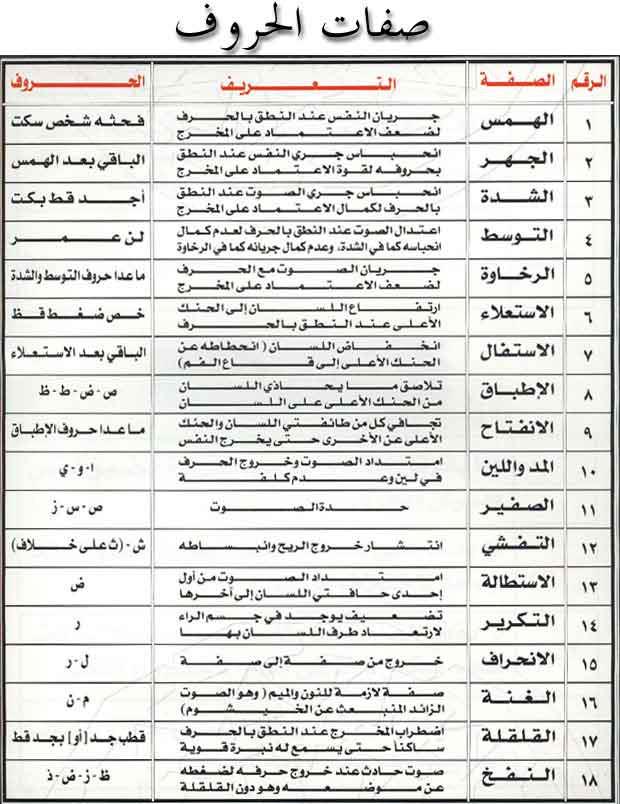 صفات الحروف
الرقم الصفة التعريف الحروف
١ الهمس جريان النفس عند النطق بالحرف فحثه شخص سكت
لضعف الاعتماد على المخرج
٢ الجهر انحباس جري النفس عند النطق الباقي بعد الهمس
بحروفه لقوة الاعتماد على المخرج
٣ الشدة انحباس جري الصوت عند النطق أجد قط بكت
بالحرف لكمال الاعتماد على المخرج
٤ التوسط اعتدال الصوت عند النطق بالحرف لعدم كمال لن عمر
انحباسه كما في الشدة، وعدم كمال جريانه كما في الرخاوة
٥ الرخاوة جريان الصوت مع الحرف ماعدا حروف التوسط والشدة
لضعف الاعتماد على المخرج
٦ الاستعلاء ارتفاع اللسان إلى الحنك خص ضغط قظ
الأعلى عند النطق بالحرف
٧ الاستفال انخفاض اللسان (انحطاطه عن الباقي بعد الاستعلاء
الحنك الأعلى إلى قاع الفم)
٨ الإطباق تلاصق ما يحاذي اللسان ص - ض - ط - ظ
من الحنك الأعلى على اللسان
٩ الانفتاح تجافي كل من طائفتي اللسان والحنك ماعدا حروف الإطباق
الأعلى عن الأخرى حتى يخرج النفس
١٠ المد واللين امتداد الصوت وخروج الحرف ا - و - ي
في لين وعدم كلفة
١١ الصفير حدة الصوت ص - س - ز
١٢ التفشي انتشار خروج الريح وانبساطه ش - (ث على خلاف)
١٣ الاستطالة امتداد الصوت من أول ض
إحدى حافتي اللسان إلى أخرها
١٤ التكرير تضعيف يوجد في جسم الراء ر
لارتعاد طرف اللسان بها
١٥ الانحراف خروج من صفة إلى صفة ل - ر
١٦ الغنة صفة لازمة للنون والميم (وهو الصوت م - ن
الزائد المنبعث عن الخيشوم)
١٧ القلقلة اضطراب المخرج عند النطق بالحرف قطب جد [أو] بجد قط
ساكناً حتى يسمع له نبرة قوية
١٨ النفخ صوت حادث عند خروج حرفه لضغطه ظ - ز - ض - ذ
عن موضعه وهو دون القلقلة